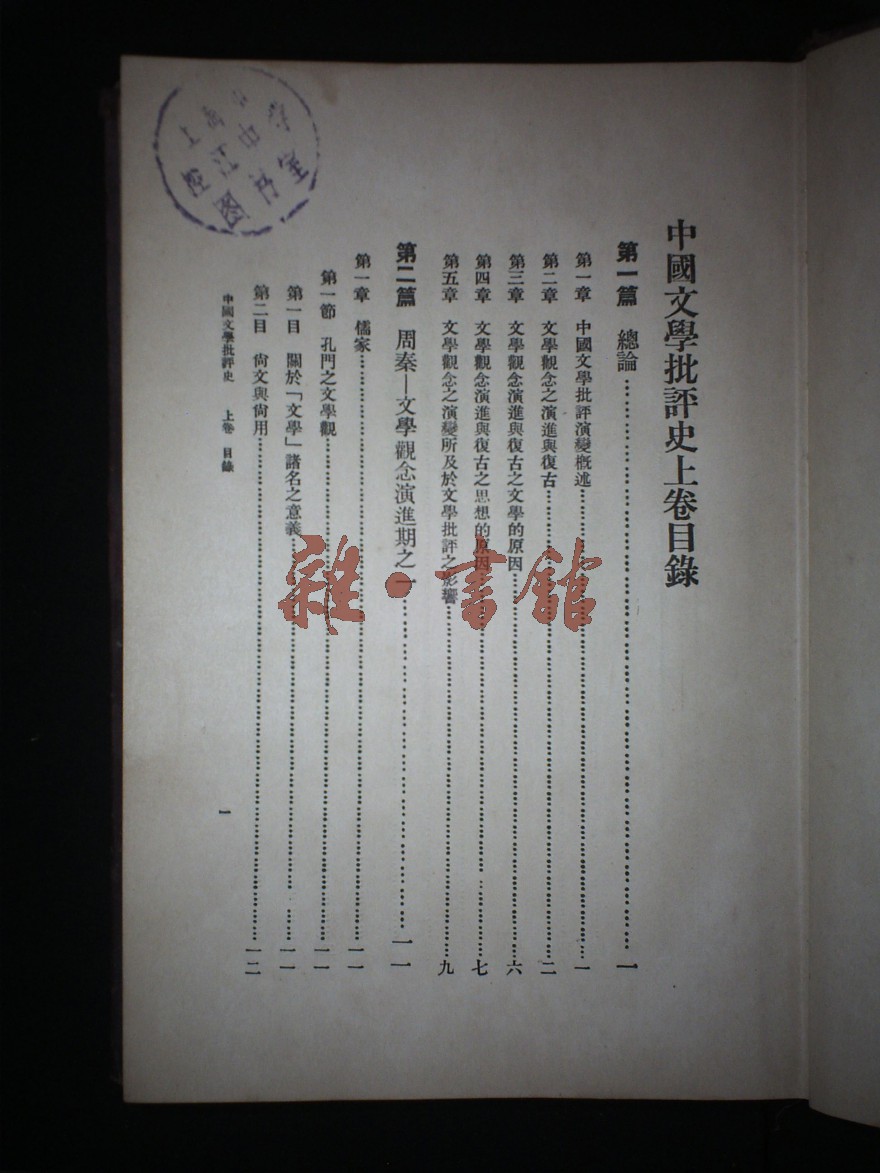 中國文學批評史上卷目錄
第一篇 總論……一
第一章 中國文學批評演變概述……一
第二章 文學觀念之演進與復古……二
第三章 文學觀念演進與復古之文學的原因……六
第四章 文學觀念演進與復古之思想的原因……七
第五章 文學觀念之演變所及於文學批評之影響……九
第二篇 周秦—文學觀念演進期之一……一一
第一章 儒家……一一
第一節 孔門之文學觀……一一
第一目 關於「文學」諸名之意義……一一
第二目 尚文與尚用……一二
中國文學批評史 上卷 目錄
一
上海市
控江中學
圖書室
雜·書館